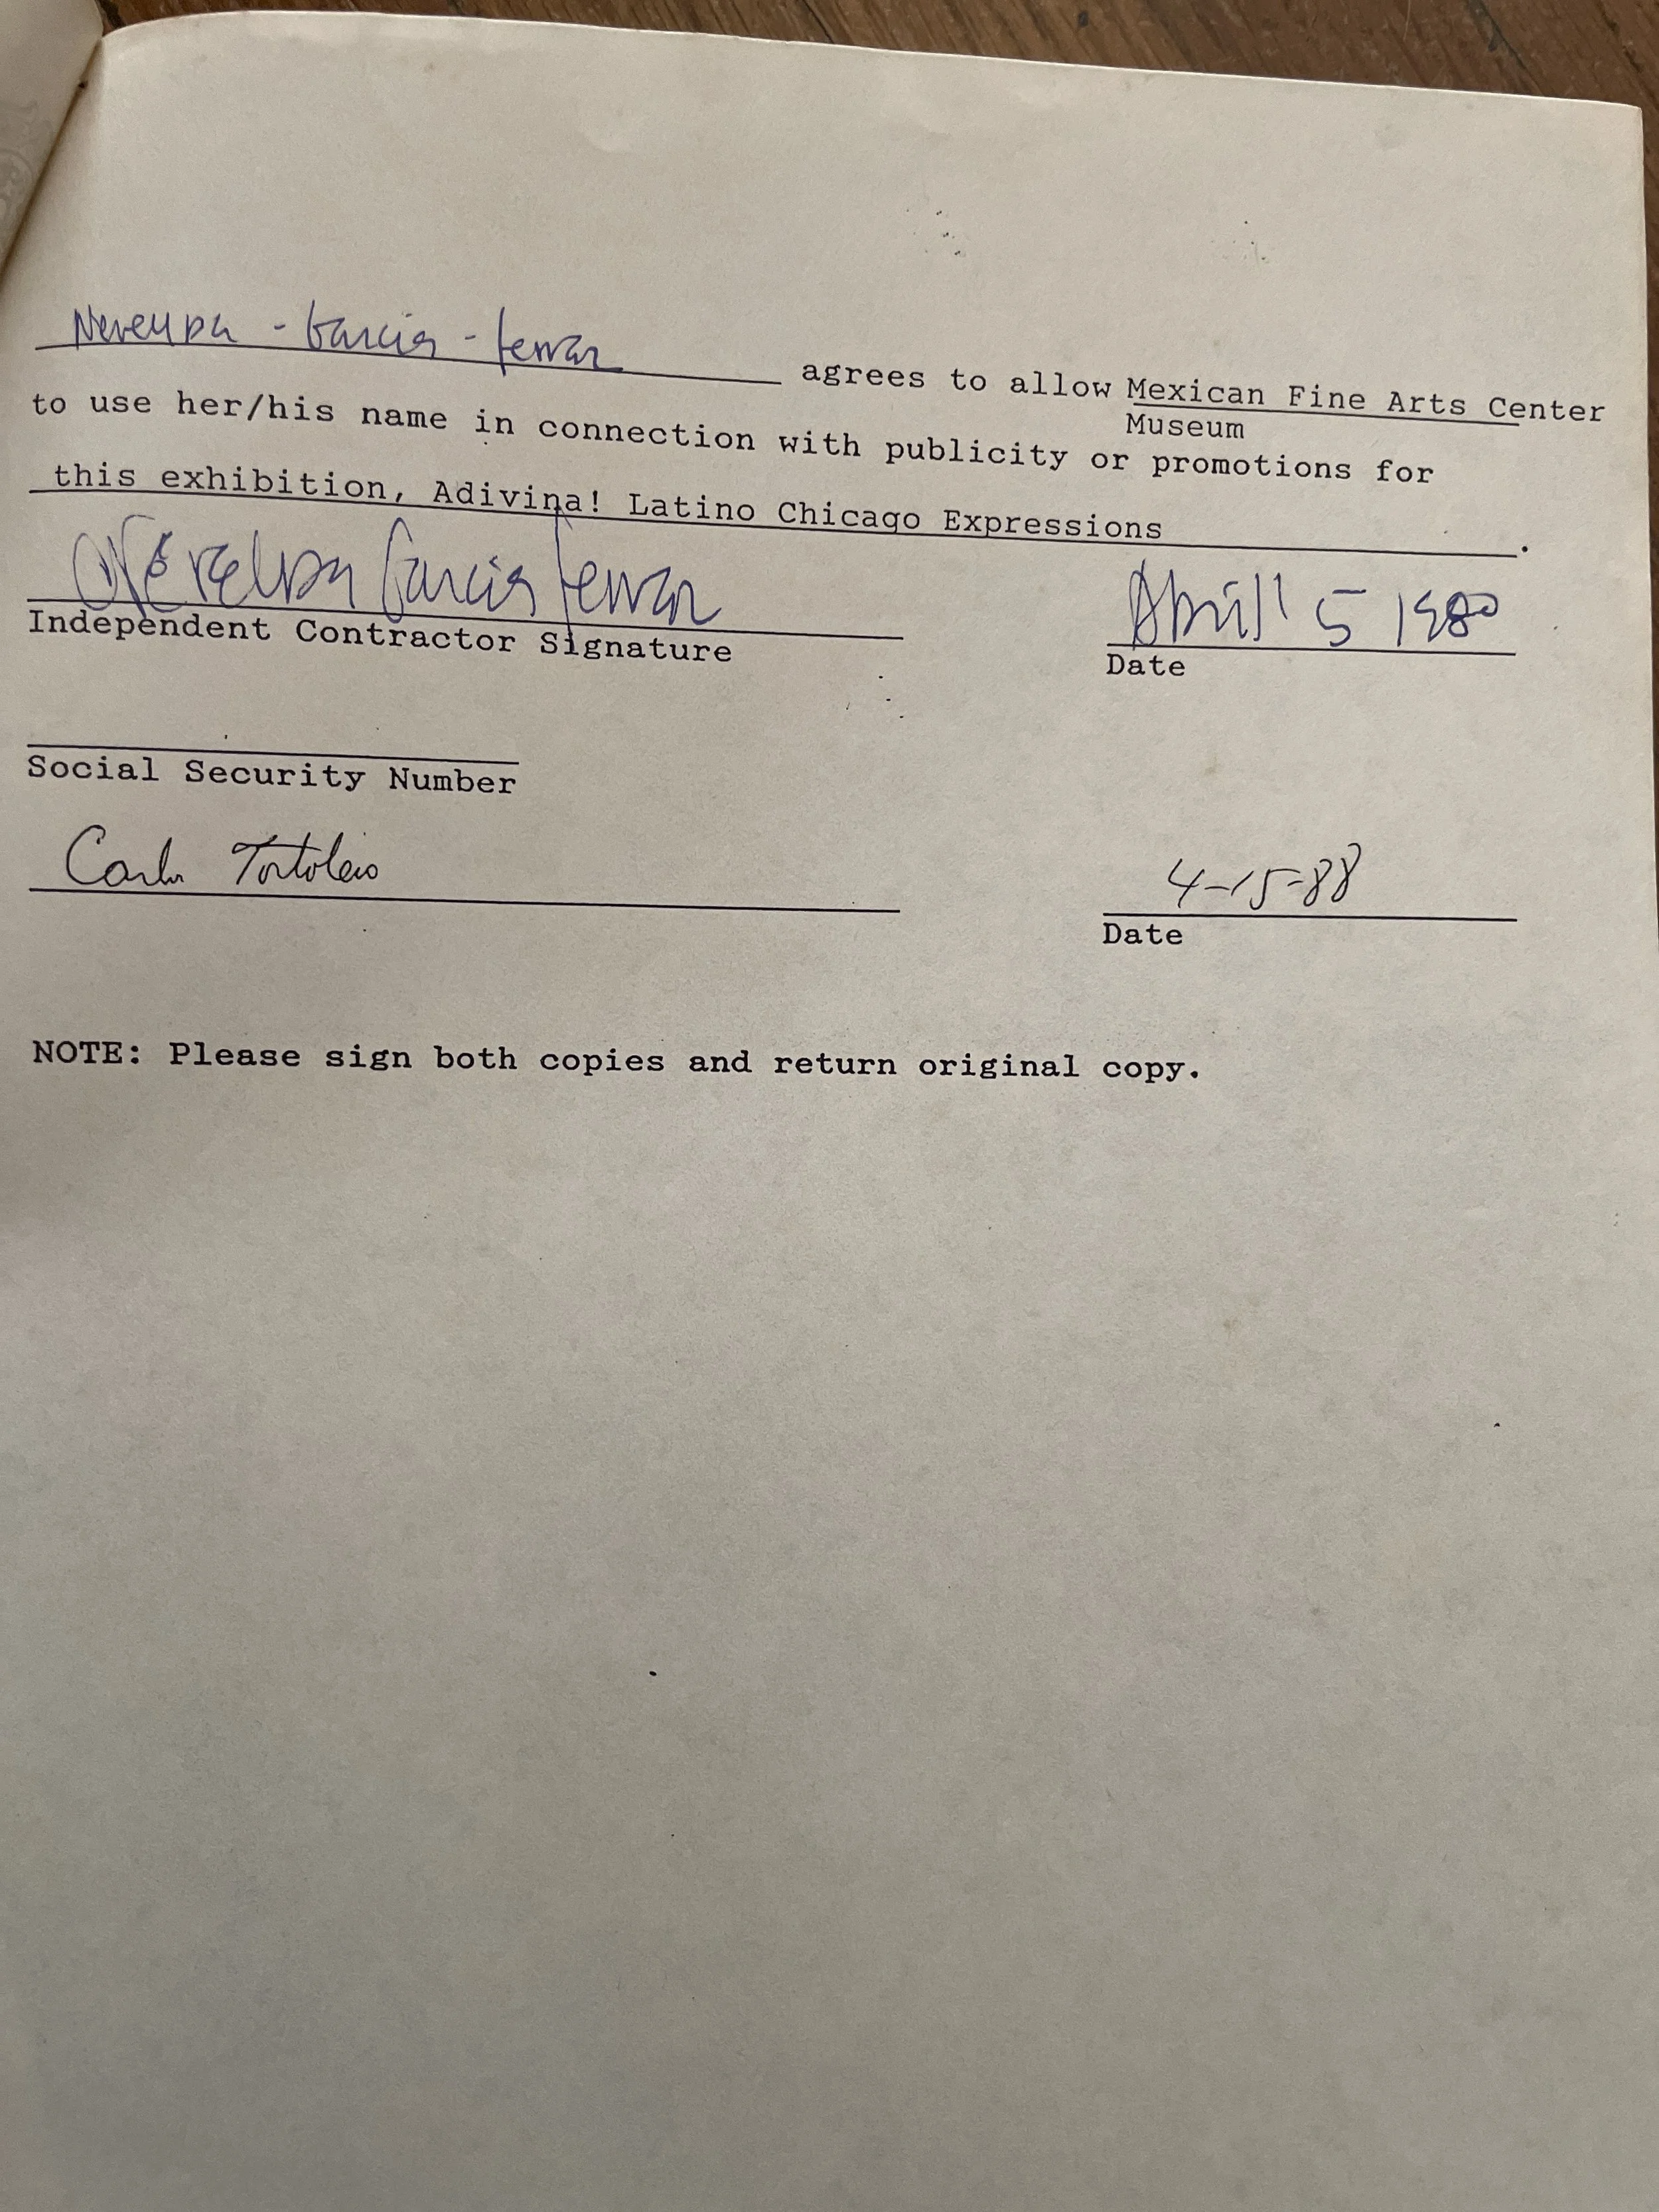 Nereyda - Garcia - Ferraz agrees to allow Mexican Fine Arts Center
Museum
to use her/his name in connection with publicity or promotions for
this exhibition, Adivina! Latino Chicago Expressions.
Nereyda Garcia Ferraz
Independent Contractor Signature
5 1980
Date
Social Security Number
Carlos Tortolero
4-15-88
Date
NOTE: Please sign both copies and return original copy.